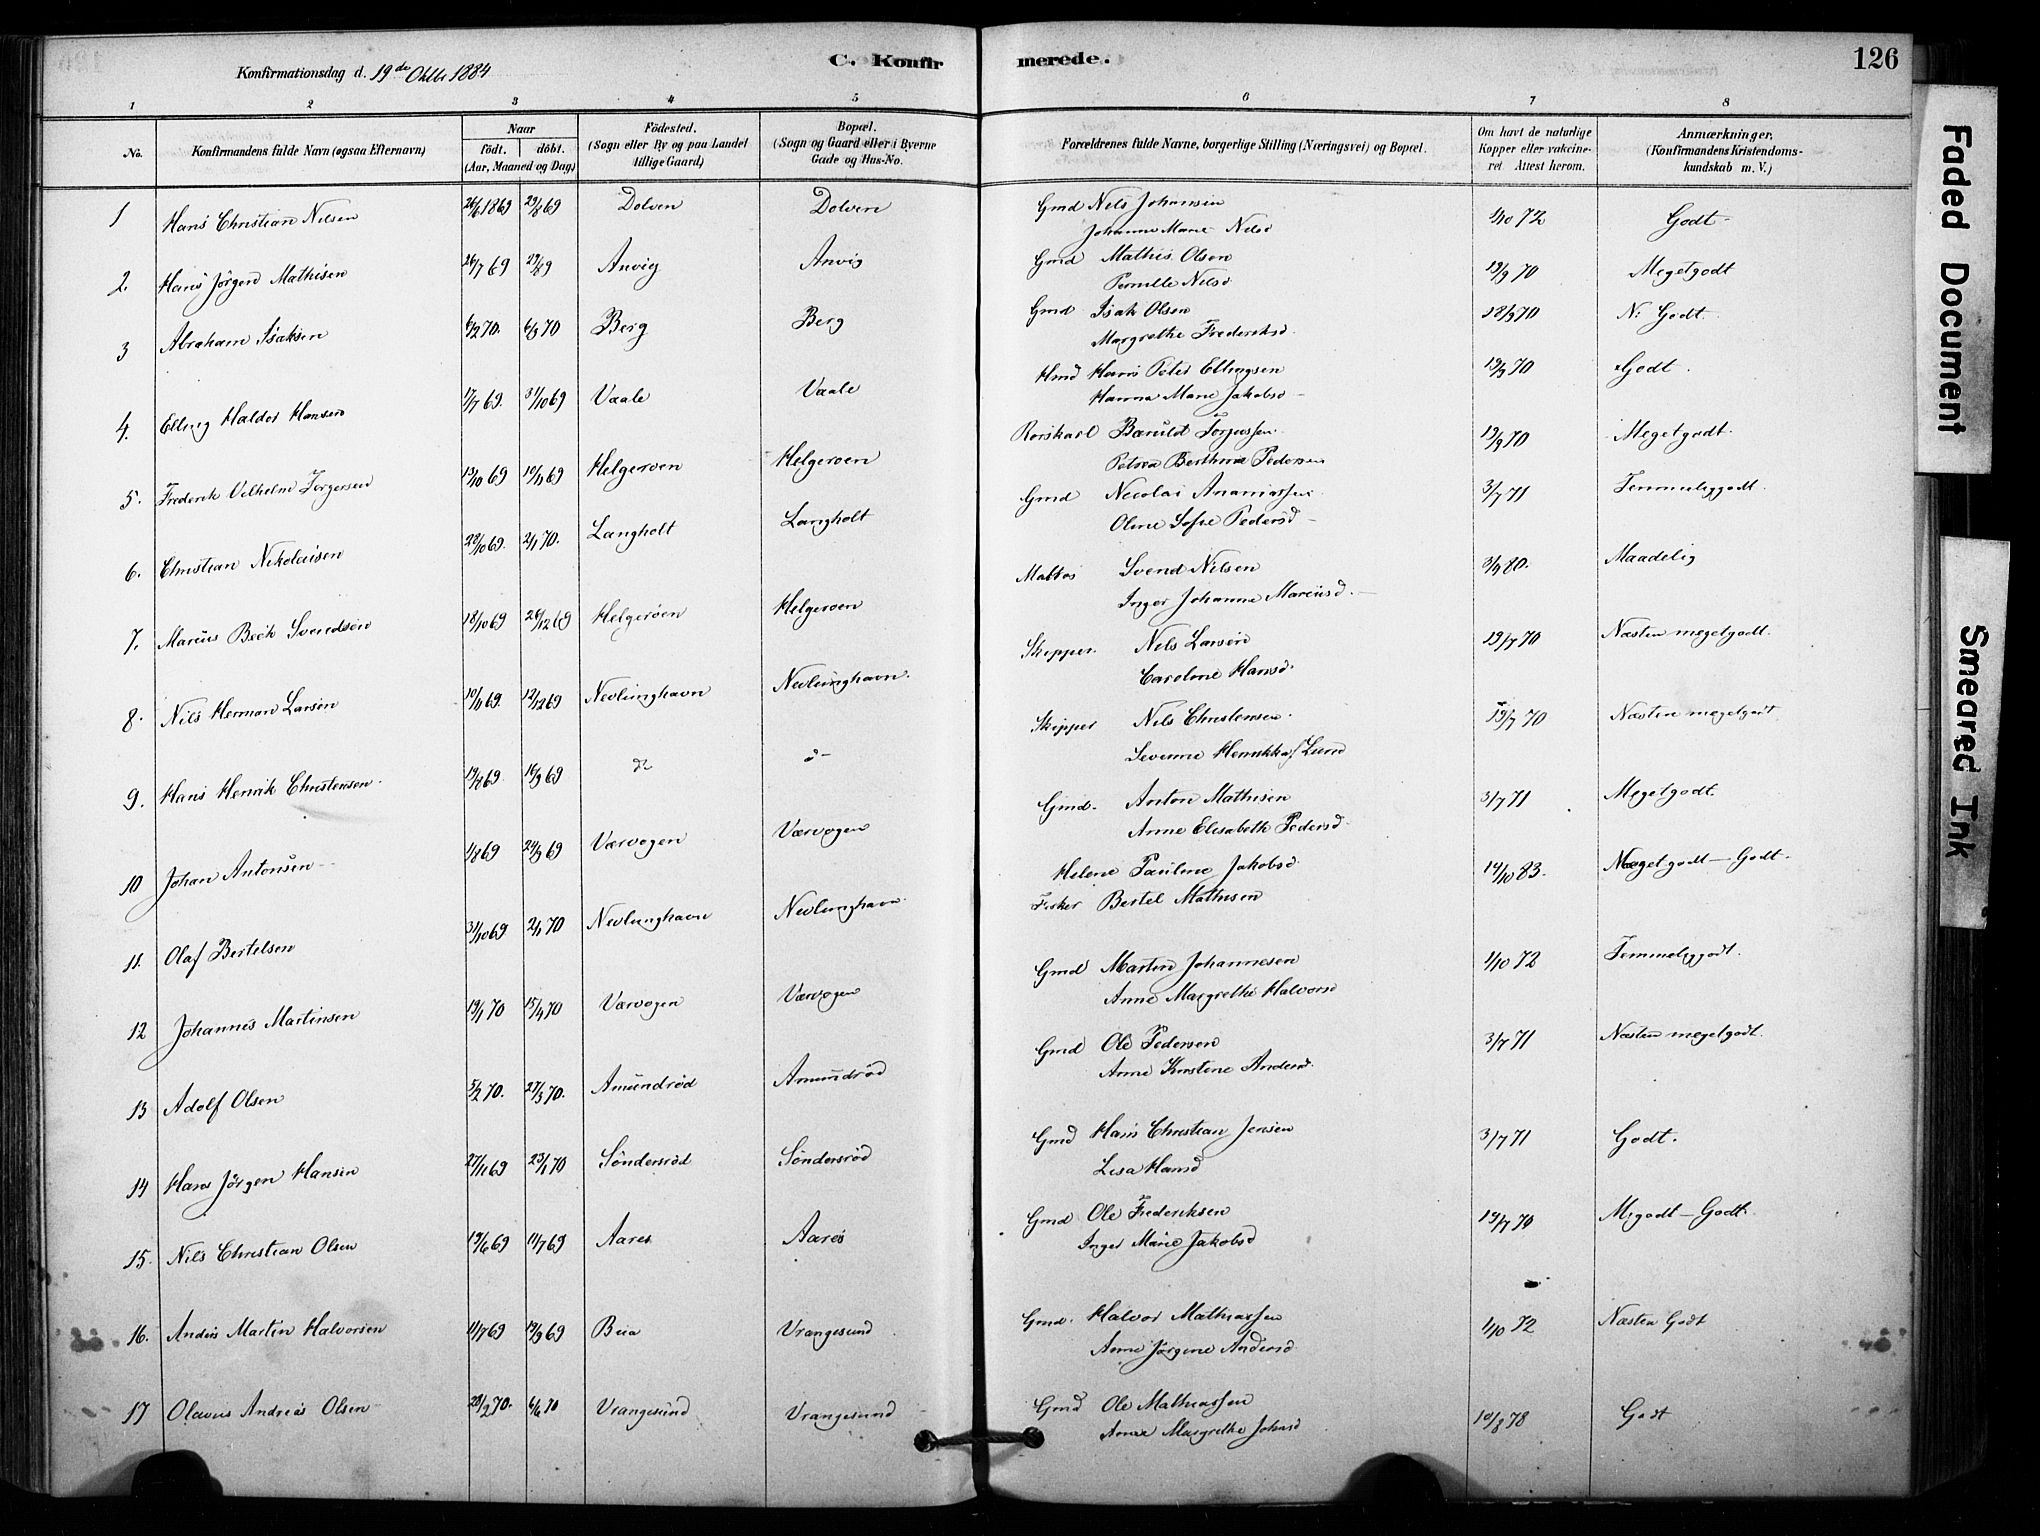 Konfirmationsdag d. 19de Oktbr 1884
C. Konfir
merede.
126
1 2 3 4 5 6 7 8
No.
Konfirmandens fulde Navn (ogsaa Efternavn)
Naar
födt. döbt.
(Aar, Maaned og Dag)
Födested.
(Sogn eller By og paa Landet
tillige Gaard)
Bopæl.
(Sogn og Gaard eller i Byerne
Gade og Hus-No.
Forældrenes fulde Navne, borgerlige Stilling (Næringsvei) og Bopæl.
Om havt de naturlige
Kopper eller vakcine-
ret Attest herom.
Anmærkninger.
(Konfirmandens Kristendoms-
kundskab m. V.)
1 Hans Christian Nilsen 26/6 1869 29/8 69 Dolven Dolven Gmd Nils Johansen 1/10 72 Godt
Johanne Marie Nilsd
2. Hans Jörgen Mathisen 26/7 69 29/8 69 Anvig Anvig Gmd Mathis Olsen 19/9 70 Megetgodt
Pernille Nilsd
3 Abraham Isaksen 6/2 70. 6/3 70 Berg Berg Gmd Isak Olsen 12/9 70 N. Godt.
Margrethe Frederiksd.
4. Elling Haldor Hansen 1/7 69. 31/10 69 Vaale Vaale Hmd Hans Peter Ellingsen 19/9 70 Godt.
Hanna Marie Jakobsd
5. Frederik Vilhelm Torgersen 13/10 69 10/11 69 Helgeroen Helgeroen Rorskarl 19/9 70 Megetgodt.
Petrea Berthine Pedersen
6. Christian Nikolaisen 28/10 69. 2/1 70. Langholt Langholt Gmd Necolai Ananiassen 3/7 71 Temmeliggodt.
Oline Sofie Pedersd
7. Marcus Beck Svendsen 18/10 69 26/12 69 Helgeröen Helgeroen Matros Svend Nilsen 3/9 80. Maadelig
Inger Johanne Marcusd.
8. Nils Herman Larsen 10/11 69. 12/12 69 Nevlunghavn Nevlunghavn. Skipper Nils Larsen 19/7 70 Næsten megetgodt.
Caroline Hansd.
9. Hans Henrik Christensen. 19/8 69. 16/9 69 do do Skipper Nils Christensen. 19/7 70 Næsten megetgodt
Severine Henrikka f. Lund
10 Johan Antonsen 1/8 69 24/9 69 Værvogen Værvogen Gmd. Anton Mathisen 3/7 71 Megetgodt.
Anne Elisabeth Pedersd.
11. Olaf Bertelsen 31/10 69 2/1 70 Nevlunghavn Nevlunghavn Helene Pauline Jakobsd 14/10 83. Megetgodt – Godt.
Fisker Bertel Mathisen
12 Johannes Martinsen 19/1 70 15/4 70 Værvogen Værvogen Gmd Martin Johannesen 1/10 72 Temmeliggodt.
Anne Margrethe Halvorsd
13 Adolf Olsen 5/2 70. 27/3 70. Amundröd Amundröd Gmd Ole Pedersen 3/7 71 Næsten megetgodt.
Anne Kirstine Andersd.
14 Hans Jörgen Hansen 27/11 69 23/1 70 Söndersröd Söndersröd Gmd Hans Christian Jensen 3/7 71 Godt.
Lisa Hansd
15. Nils Christian Olsen 19/6 69 11/7 69 Aares Aares Gmd Ole Frederiksen 19/7 70 Mgodt – Godt.
Inger Marie Jakobsd
16. Anders Martin Halvorsen 11/7 69 19/9 69 Bua Vrangesund Gmd. Halvor Mathiassen 1/10 72 Næsten Godt
Anne Jörgine Andersd
17 Olavus Andreas Olsen 28/2 70. 6/6 70 Vrangesund Vrangesund Gmd Ole Mathiassen 10/8 78 Godt
Anne Margrethe Johnsd
Faded Document
Smeared Ink